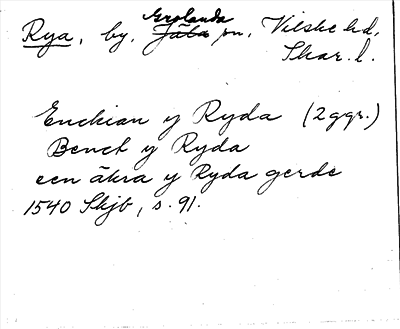 Grolanda
Rya, by, Jäla sn, Vilske hd,
Skar. l.
Enckian y Ryda (2 ggr.)
Benct y Ryda
een åkra y Ryda gerde
1540 Skjb, s. 91.